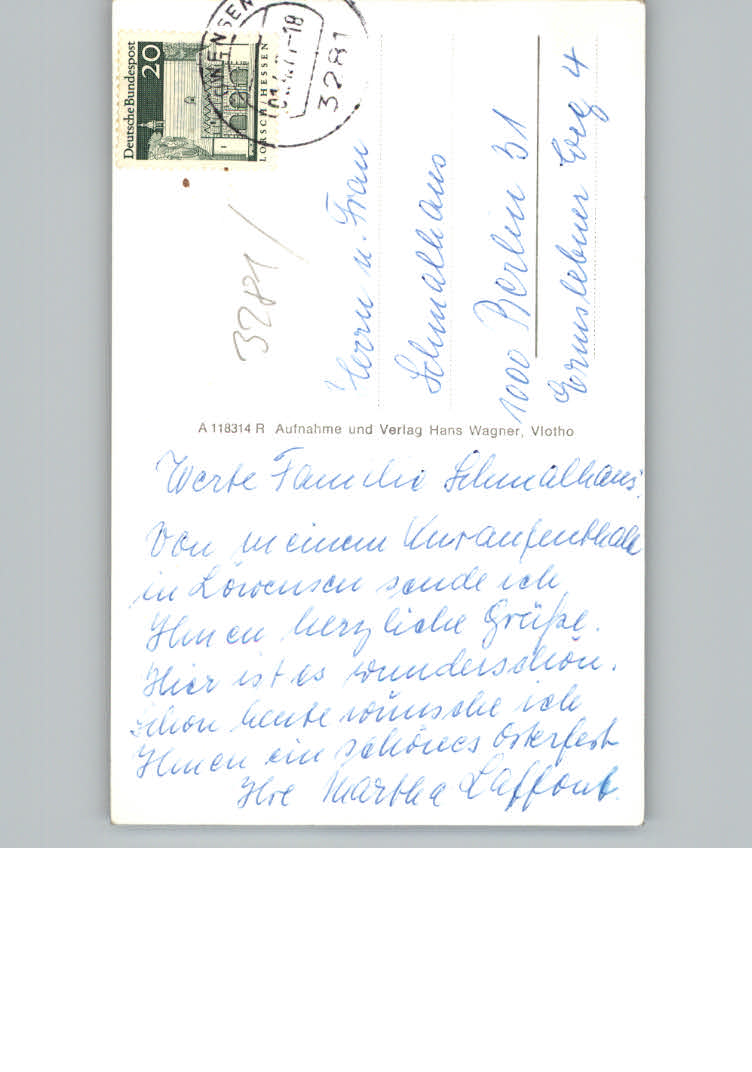 Deutsche Bundespost
20
LORSCH/HESSEN
3281
-18
3281
Herrn u. Frau
Schmalhaus
1000 Berlin 31
Ermslebener Weg 4
A 118314 R Aufnahme und Verlag Hans Wagner, Vlotho
Werte Familie Schmalhaus!
Von meinem Kuraufenthalt
in Löwensen sende ich
Ihnen herzliche Grüße.
Hier ist es wunderschön.
Schon heute wünsche ich
Ihnen ein schönes Osterfest
Ihre Martha Laffont.